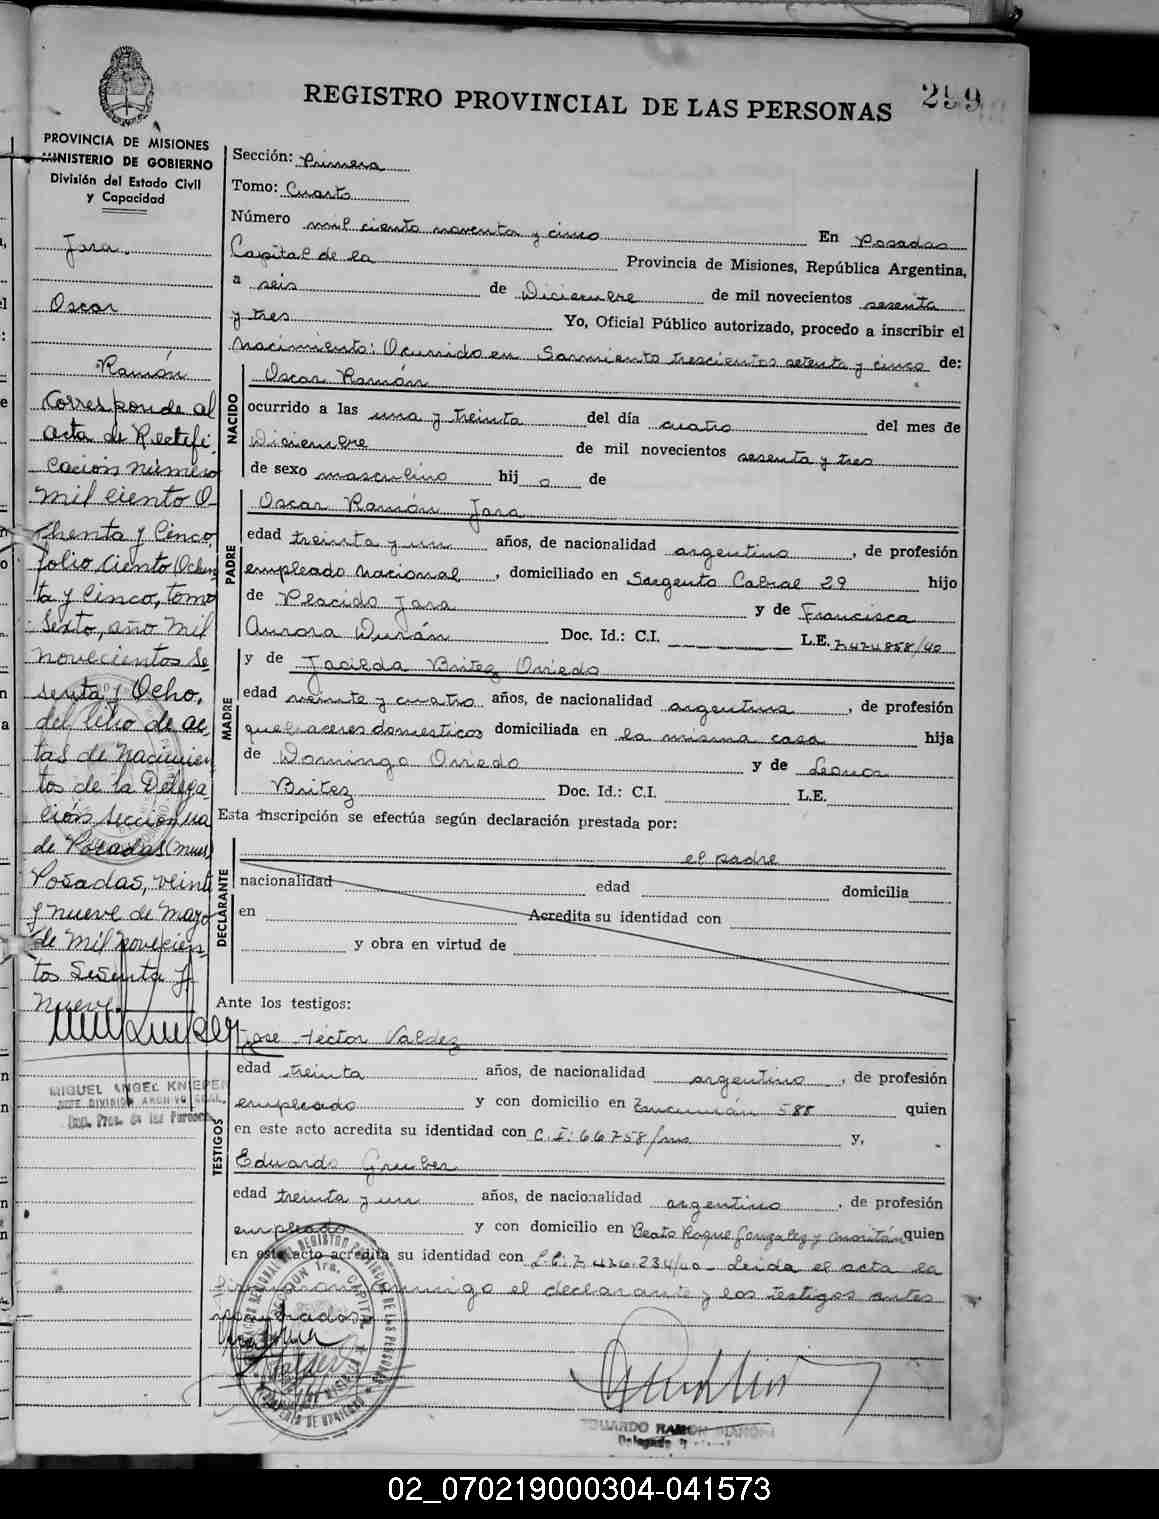 REGISTRO PROVINCIAL DE LAS PERSONAS
299
PROVINCIA DE MISIONES
MINISTERIO DE GOBIERNO
División del Estado Civil
y Capacidad
Jara.
Oscar
Ramón
Corresponde al
acta de Rectifi
cación número
mil ciento O-
chenta y Cinco,
folio, ciento Ochen
ta y Cinco, tomo
Sexto, año mil
novecientos Se-
senta y Ocho,
del libro de ac
tas de nacimien
tos de la Delega
ción sección
de Posadas
Posadas, veinti
y nueve de mayo
de mil novecien-
tos Sesenta y
nueve.
MIGUEL ANGEL
JEFE DIVISION ARCHIVO GRAL.
Sección: Primera
Tomo: Cuarto
Número mil ciento noventa y cinco En Posadas
Capital de la Provincia de Misiones, República Argentina,
a seis de Diciembre de mil novecientos sesenta
y tres Yo, Oficial Público autorizado, procedo a inscribir el
Nacimiento: Ocurrido en Sarmiento trescientos setenta y cinco de:
NACIDO
Oscar Ramón
ocurrido a las una y treinta del día cuatro del mes de
Diciembre de mil novecientos sesenta y tres
de sexo masculino hij o de
PADRE
Oscar Ramón Jara
edad treinta y un años, de nacionalidad argentino, de profesión
empleado nacional, domiciliado en Sargento Cabral 29 hijo
de Placido Jara y de Francisca
Aurora Durán Doc. Id.: C.I. L.E. 7.474.858/40
MADRE
y de Jacilda Britez Oviedo
edad veinte y cuatro años, de nacionalidad argentina, de profesión
quehaceres domesticos domiciliada en la misma casa hija
de Domingo Oviedo y de Leonor
Britez Doc. Id.: C.I. L.E.
Esta inscripción se efectúa según declaración prestada por:
DECLARANTE
el padre
nacionalidad edad domicilia
en Acredita su identidad con
y obra en virtud de
Ante los testigos:
TESTIGOS
Jose Héctor Valdez
edad treinta años, de nacionalidad argentino, de profesión
empleado y con domicilio en Tucumán 588 quien
en este acto acredita su identidad con C.I: 66758/ms y,
Eduardo Gruber
edad treinta y un años, de nacionalidad argentino, de profesión
empleado y con domicilio en Beato Roque Gonzalez y quien
en este acto acredita su identidad con L.E: 7.426.234/40- Leida el acta la
firmaron conmigo el declarante y los testigos antes
nombrados.
Valdez
EDUARDO RAMON
Delegado
02_070219000304-041573